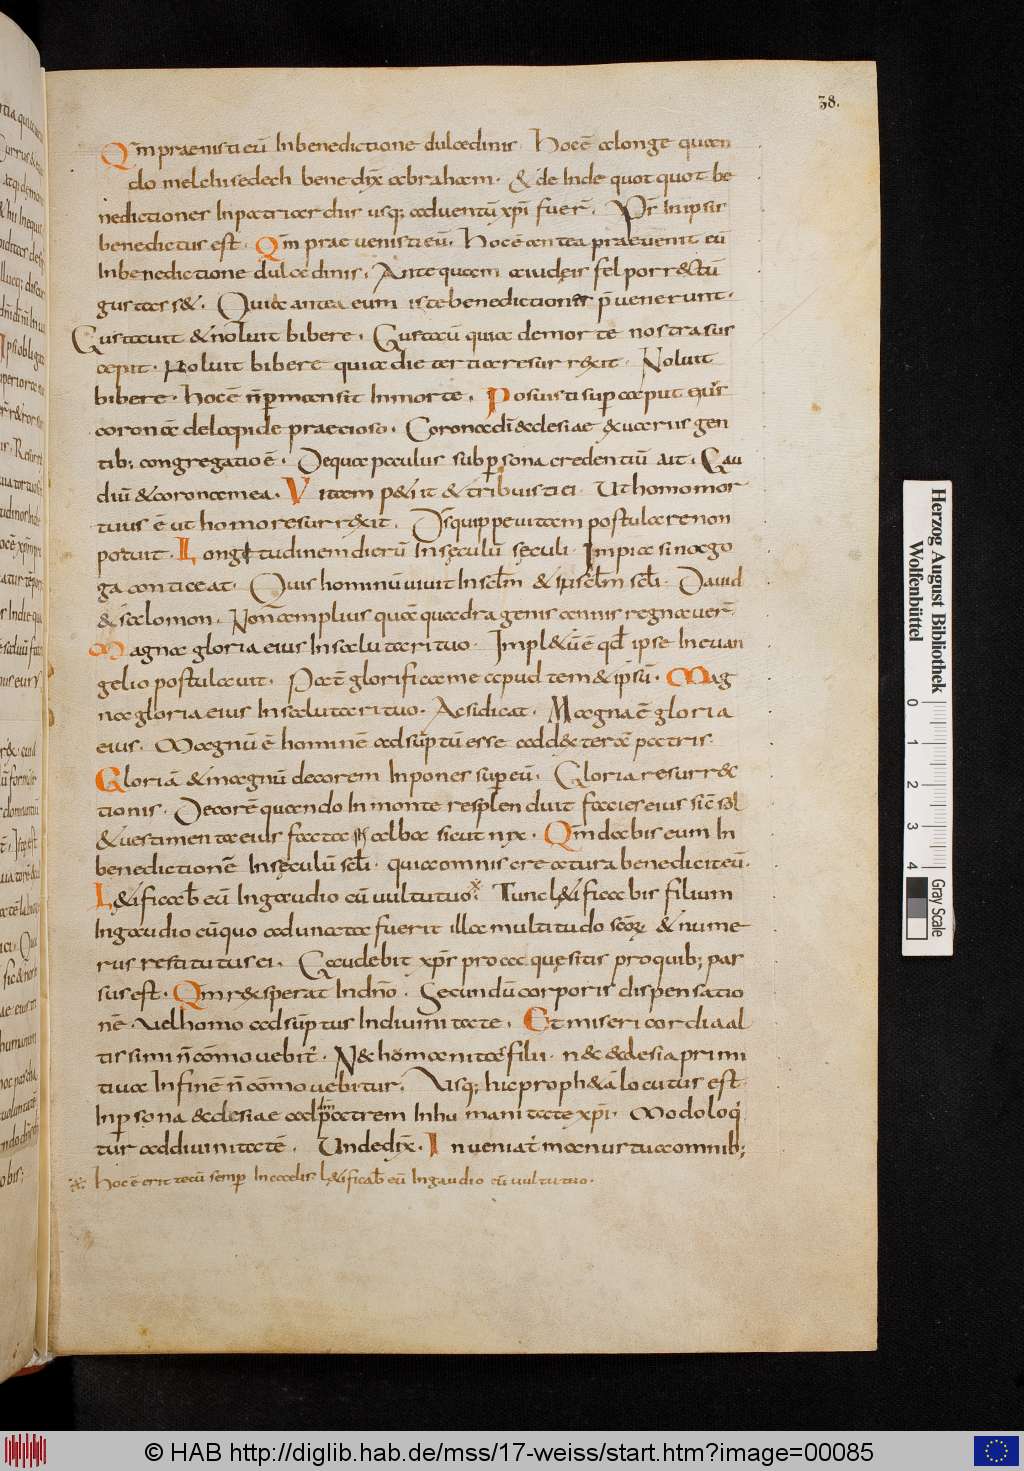 38.
Qm̄ praenisti eū In benedictione dulcedinis. Hoc ē a longe quan
do melchisedech benedix̄ abraham. & de Inde quot quot be
nedictiones In patriarchis usq; aduentū xp̄i fuer̄. P̄r In ipsis
benedictus est. Qm̄ prae uenisti eū. Hoc ē antea praeuenit eū
In benedictione dulcedinis. Antequam a iudeis fel porrectū
gustasset. Quia antea eum iste benedictiones p̄uenerunt.
Gustauit & noluit bibere. Gustatū quia de morte nostra sus
cepit. Noluit bibere quia die tertia resurrexit. Noluit
bibere. hoc ē n̄ permansit In morte. Posuisti sup caput eius
coronā de lapide praetioso. Corona dī ecclesiae ex uariis gen
tib; congregatio ē. De qua paulus sub persona credentiū ait. Gau
diū & corona mea. Vitam petiit & tribuisti ei. Ut homo mor
tuus ē ut homo resurrexit. D̄s quippe uitam postulare non
potuit. Longitudinem dierū In sęculū sęculi. Impia sinago
ga conticeat. Quis hominū uiuit In sclm̄ & In sclm̄ scl̄i. Dauid
& salomon. Non āmplius quā quadragenis annis regnauer̄.
Magna gloria eius In salutari tuo. Impletū ē qd̄ ipse In euan
gelio postulauit. Pat̄ glorifica me apud temetipsū. Mag
na gloria eius In salutari tuo. Ac si dicat. Magna ē gloria
eius. Magnū ē hominē adsūptū esse ad dexterā patris.
Gloriā & magnū decorem Inpones super eū. Gloria resurrec
tionis. Decorē quando In monte resplenduit facies eius sic̄ sol
& uestimenta eius facta st̄ alba sicut nix. Qm̄ dabis eum In
benedictionē In seculū scl̄i. quia omnis creatura benedicit eū.
Lętificab̄ eū In gaudio cū uultu tuo. Tunc lętificabis filium
In gaudio cū quo adunata fuerit illa multitudo scōrꝝ & nume
rus restitutus ei. Gaudebit xp̄s pro ac quęsitis pro quib; pas
sus est. Qm̄ rex sperat In dn̄o. Secundū corporis dispensatio
nē. uel homo adsūptus In diuinitate. Et misericordia al
tissimi n̄ cōmouebit̄. Nec homo nec tās filii. nec ecclesia primi
tiua In finē n̄ cōmouebitur. Usq; huc propheta locutus est
In persona ecclesiae ad dm̄ patrem In humanitate xp̄i. Modo loqi
tur ad diuinitatē. Unde dix̄. Inueniat̄ manus tua omnib;
hoc ē erit tecū semper In caelis lętificab̄ eū In gaudio cū uultu tuo.
Herzog August Bibliothek
Wolfenbüttel
0 1 2 3 4
Gray Scale
© HAB http://diglib.hab.de/mss/17-weiss/start.htm?image=00085